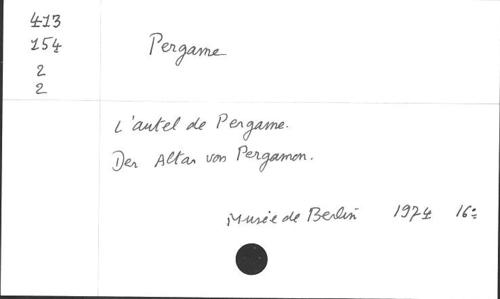 413
154
2
2
Pergame
L'autel de Pergame.
Der Altar von Pergamon.
Musée de Berlin 1974 16º